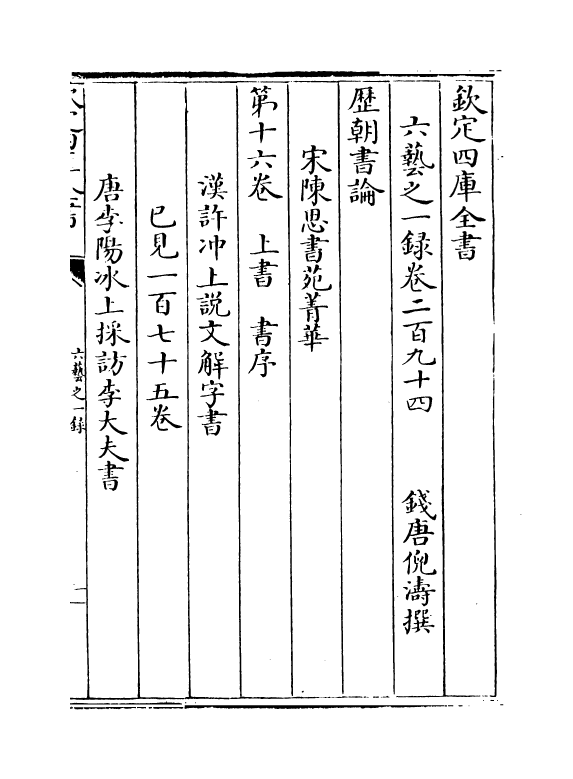 欽定四庫全書
六藝之一録卷二百九十四 錢唐倪濤撰
歴朝書論
宋陳思書苑菁華
第十六卷 上書 書序
漢許冲上説文解字書
已見一百七十五卷
唐李陽冰上採訪李大夫書
六藝之一録